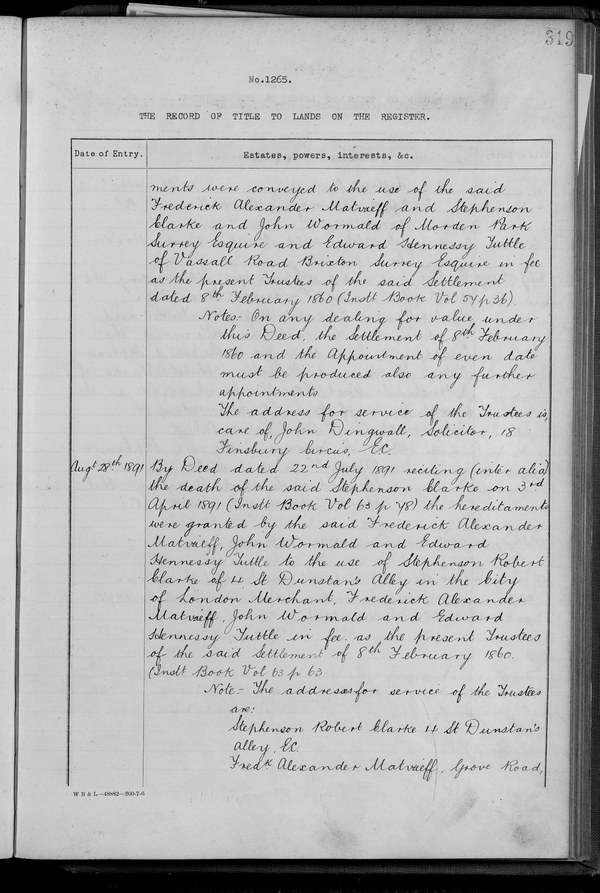 319
No.1265.
THE RECORD OF TITLE TO LANDS ON THE REGISTER.
Date of Entry.
Estates, powers, interests, &c.
ments were conveyed to the use of the said
Frederick Alexander Matvieff and Stephenson
Clarke and John Wormald of Morden Park
Surrey Esquire and Edward Hennessy Tuttle
of Vassall Road Brixton Surrey Esquire in fee
as the present Trustees of the said Settlement
dated 8th February 1860 (Instt Book Vol 54 p 36).
Notes:- On any dealing for value under
this Deed, the Settlement of 8th February
1860 and the Appointment of even date
must be produced also any further
appointments
The address for service of the Trustees is,
care of, John Dingwall, Solicitor, 18
Finsbury Circus, E.C.
Augt 28th 1891
By Deed dated 22nd July 1891 reciting (inter alia)
the death of the said Stephenson Clarke on 3rd
April 1891 (Instt Book Vol 63 p 48) the hereditaments
were granted by the said Frederick Alexander
Matvieff, John Wormald and Edward
Hennessy Tuttle to the use of Stephenson Robert
Clarke of 4 St Dunstan's Alley in the City
of London Merchant, Frederick Alexander
Matvieff, John Wormald and Edward
Hennessy Tuttle in fee as the present Trustees
of the said Settlement of 8th February 1860.
(Instt Book Vol 63 p 63
Note:- The addresses for service of the Trustees
are:
Stephenson Robert Clarke 4 St Dunstan's
Alley, E.C.
Fredk Alexander Matvieff, Grove Road,
W B & L.—48882—200-7-6